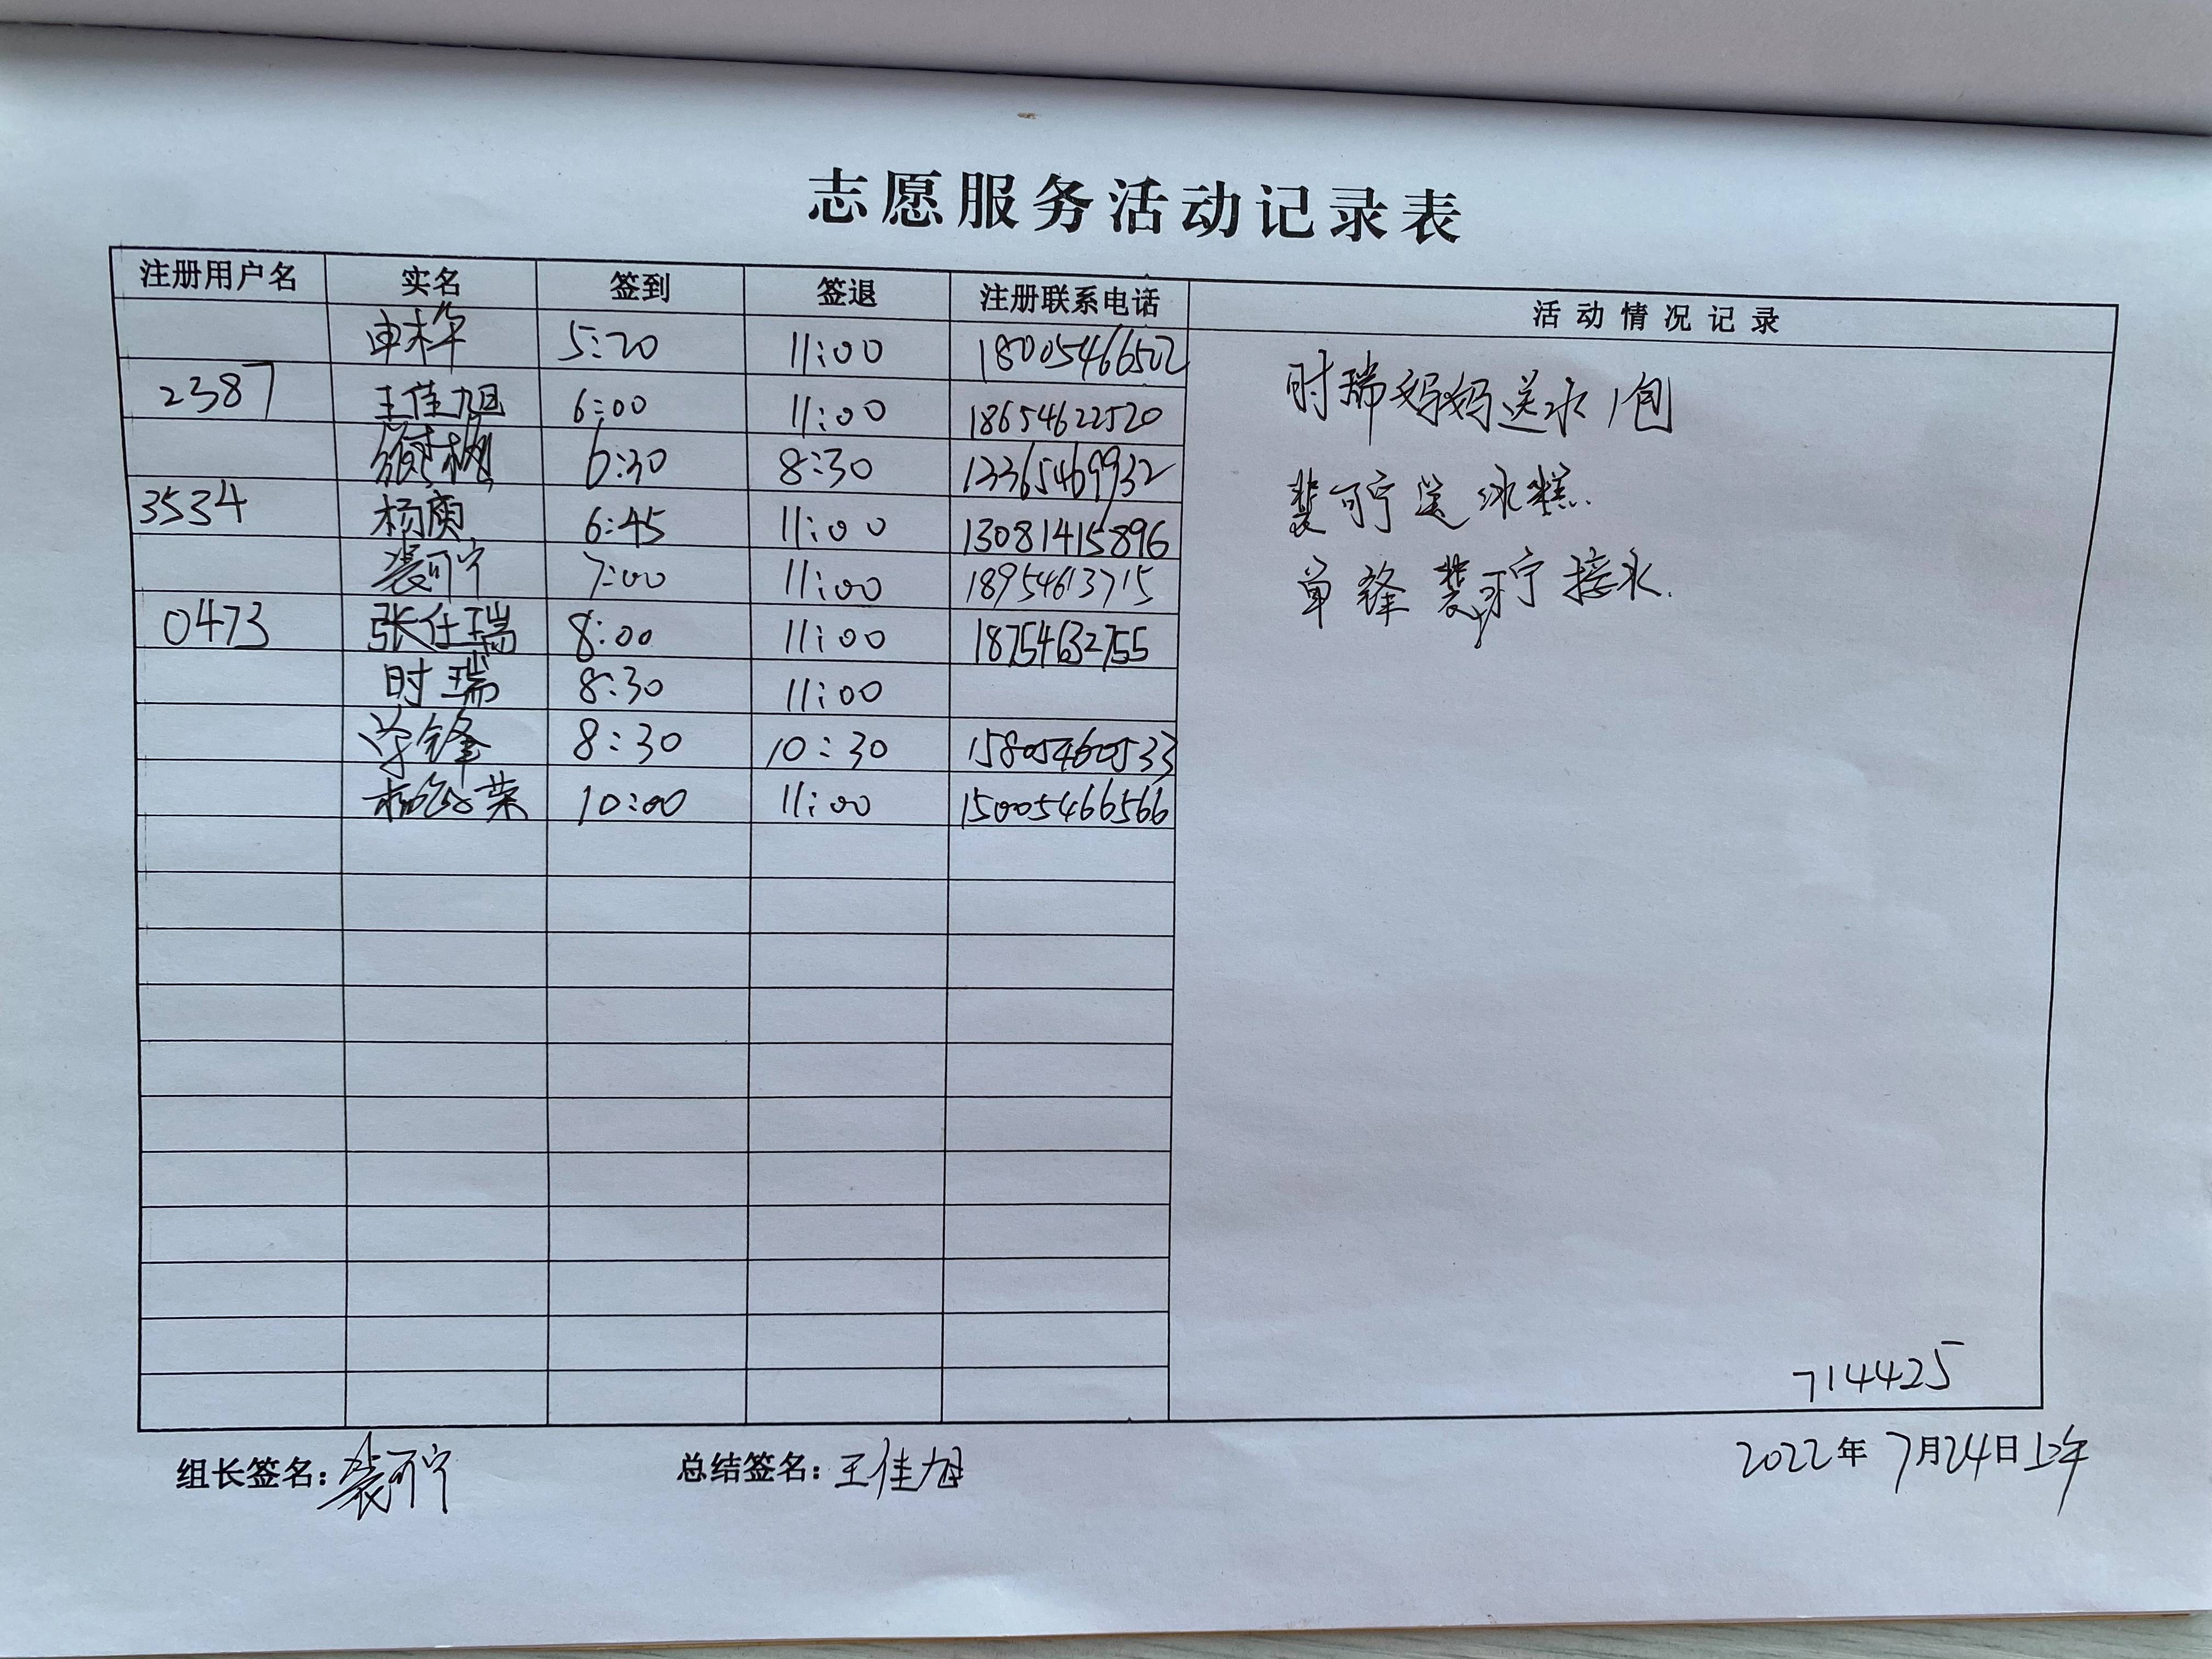 志愿服务活动记录表
注册用户名 实名 签到 签退 注册联系电话 活动情况记录
5:20 11:00 18005466502
2387 王佳旭 6:00 11:00 18654622520
6:30 8:30 13365469932
3534 杨庾 6:45 11:00 13081415896
裴可宁 7:00 11:00 18954613715
0473 张任瑞 8:00 11:00 18754632755
时瑞 8:30 11:00
单锋 8:30 10:30 15805460533
10:00 11:00 15005466566
时瑞妈妈送水1包
裴可宁送冰糕.
单锋 裴可宁接水.
714425
组长签名:裴可宁 总结签名:王佳旭 2022年7月24日上午